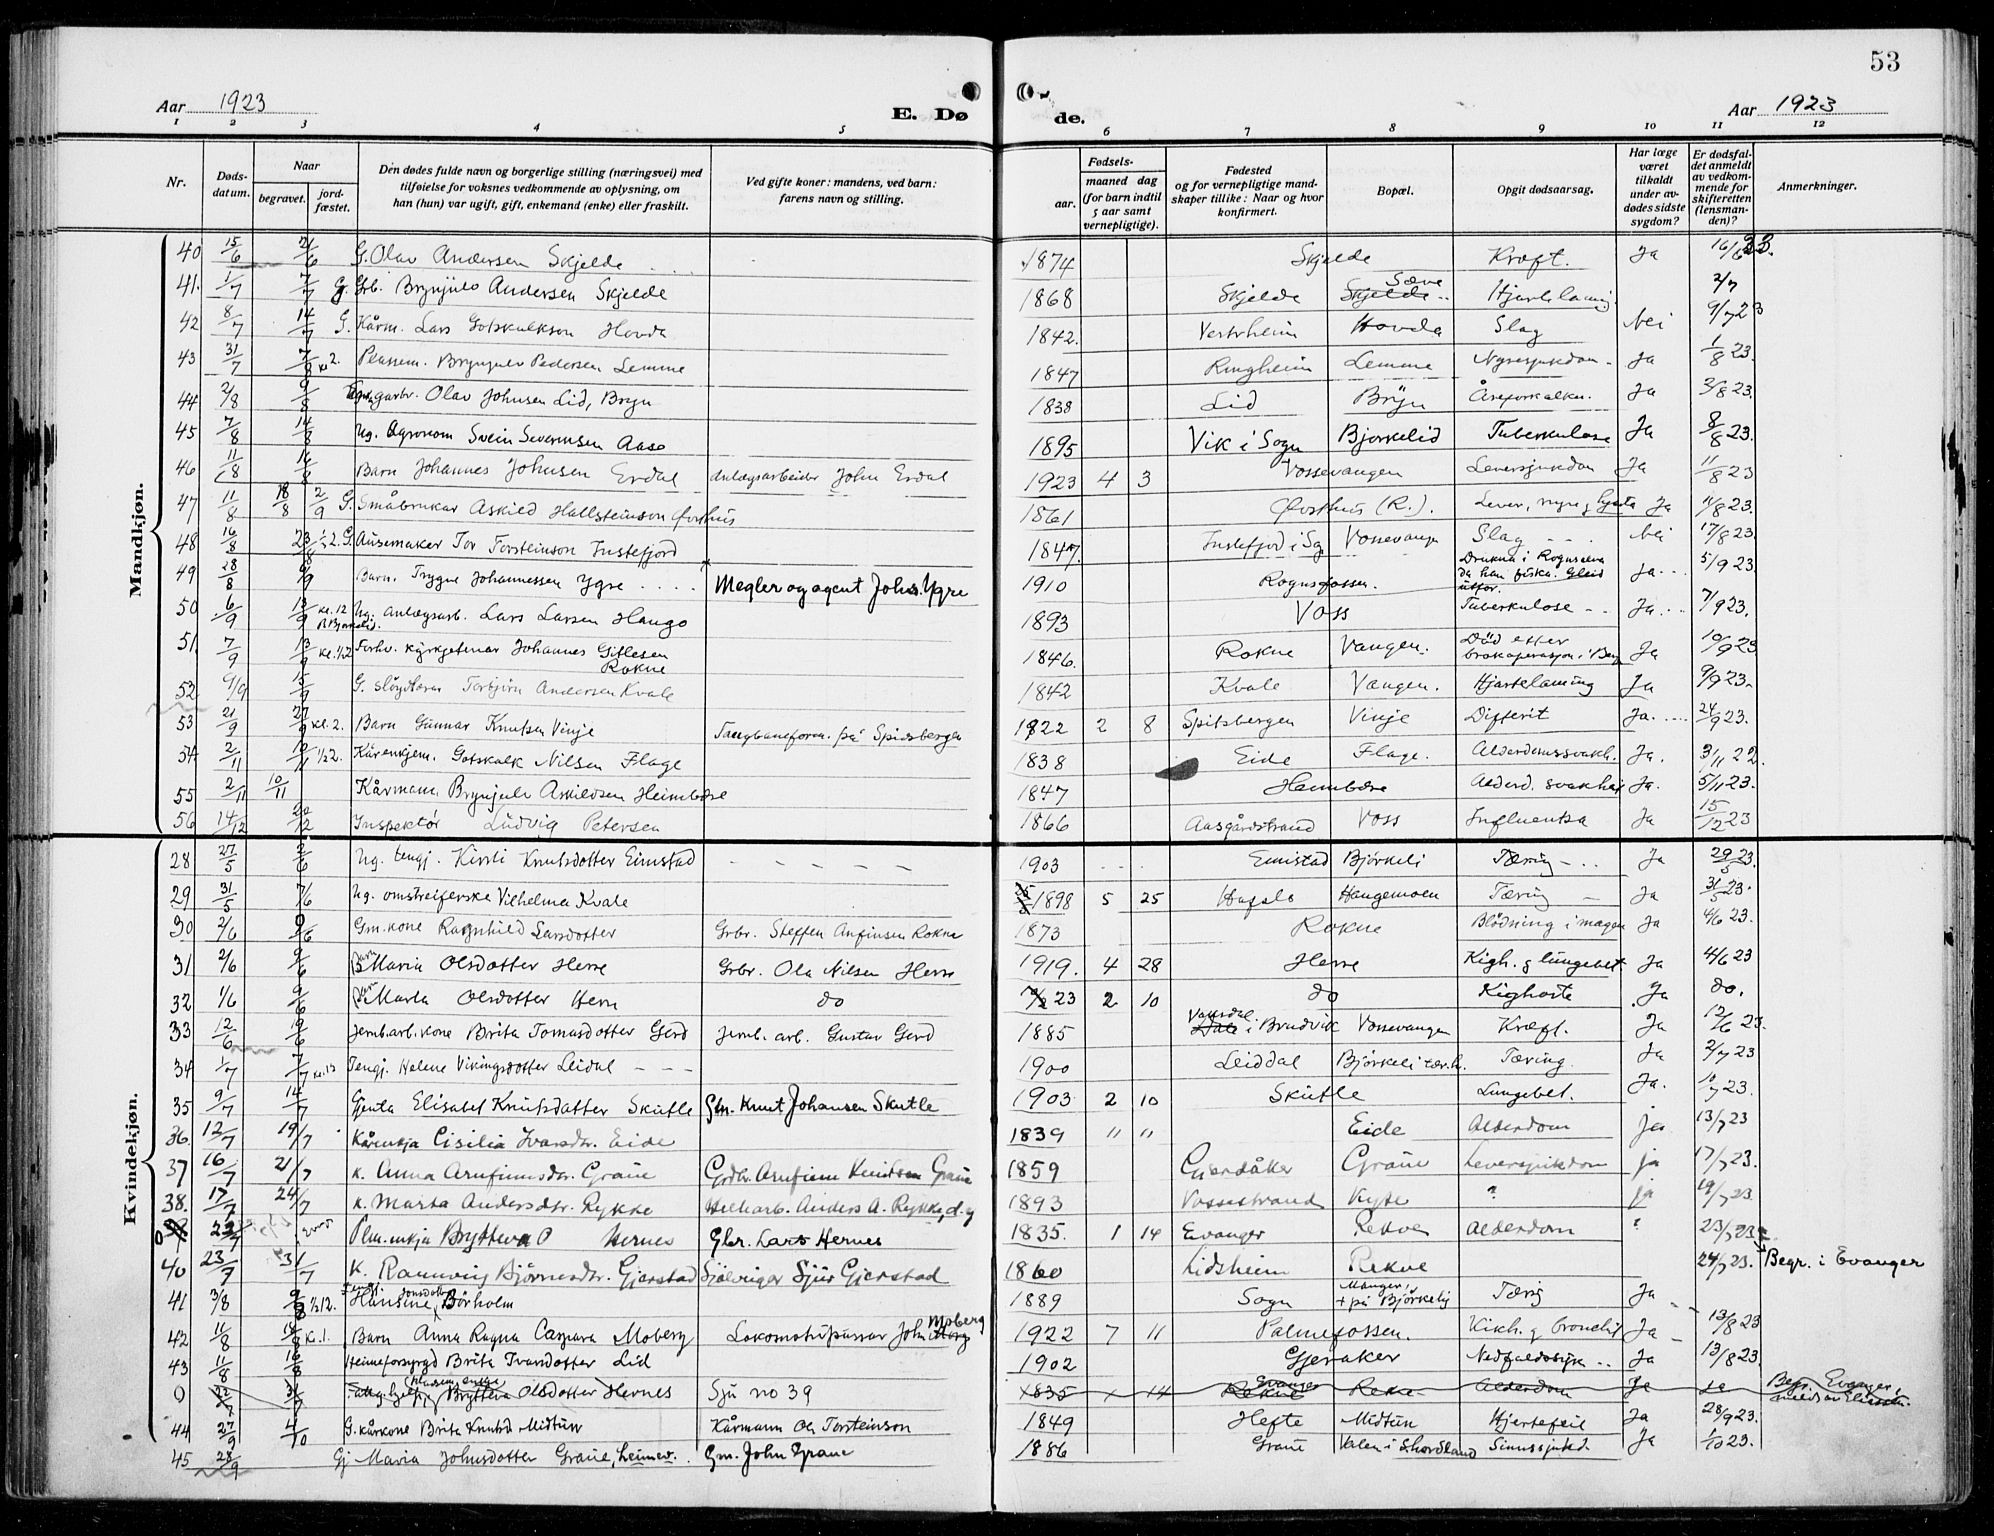 53
Aar 1923
E. Dø
de.
Aar 1923
1 2 3 4 5 6 7 8 9 10 11 12
Nr.
Døds-
datum.
Naar
begravet.
jord-
fæstet.
Den dødes fulde navn og borgerlige stilling (næringsvei) med
tilføielse for voksnes vedkommende av oplysning, om
han (hun) var ugift, gift, enkemand (enke) eller fraskilt.
Ved gifte koner: mandens, ved barn:
farens navn og stilling.
Fødsels-
aar. maaned dag
(for barn indtil
5 aar samt
vernepligtige).
Fødested
og for vernepligtige mand-
skaper tillike: Naar og hvor
konfirmert.
Bopæl.
Opgit dødsaarsag.
Har læge
været
tilkaldt
under av-
dødes sidste
sygdom?
Er dødsfal-
det anmeldt
av vedkom-
mende for
skifteretten
(lensman-
den)?
Anmerkninger.
Mandkjøn.
40 15/6 21/6 G. Olav Andersen Skjelde 1874 Skjelde Kræft. Ja 16/6 23.
41. 1/7 7/7 G. Grb. Brynjulv Andersen Skjelde 1868 Skjelde Sæve Hjartelaming 2/7
42 8/7 14/7 G. Kårm. Lars Gotskulkson Hovda 1842. Vestrheim Hovda Slag Nei 9/7 23
43 31/7 7/8 kl 2. Plassem. Brynjulv Pedersen Lemme 1847 Ringheim Lemme Nyresjukdom Ja 1/8 23.
44 2/8 9/8 garbr. Olav Johnsen Lid, Bryn 1838 Lid Bryn Åreforkalkn. Ja 3/8 23.
45 7/8 14/8 Ug. Agronom Svein Severinsen Aase 1895 Vik i Sogn Bjørkelid Tuberkulose Ja 8/8 23.
46 11/8 16/8 Barn Johannes Johnsen Erdal Anlægsarbeider John Erdal 1923 4 3 Vossevangen Leversjukdom Ja 11/8 23
47 11/8 18/8 2/9 G. Småbrukar Askild Hallsteinson Øvsthus 1861 Øvsthus (R.). Lever, nyre g hjarta Ja 11/8 23.
48 16/8 23/8 1/2 2. G. Ausemaker Tor Torsteinson Instefjord 1847 Instefjord i Sog Vossevange Slag Nei 17/8 23.
49 28/8 9/9 Barn. Trygve Johannessen Ygre Megler og agent Johs. Ygre 1910 Rognsfossen. Drukna i Rognselva
da han fiska. Gleid
utfor. Ja 5/9 23
50 6/9 13/9 kl. 12 Ug. anlægsarb. Lars Larsen Haugo 1893 Voss Tuberkulose Ja 7/9 23.
51. 7/9 13/9 kl. 1/2 2 Forhv. kyrkjetenar Johannes Gitlesen
Rokne 1846. Rokne Vangen. Død etter
brokoperasjon i Berg Ja 10/9 23
52 9/9 15/9 G. sløydlærar Torbjørn Andersen Kvale 1842 Kvale Vangen. Hjartelaming Ja 9/9 23.
53 21/9 27/9 kl. 2. Barn Gunnar Knutsen Vinje Taugbaneform. på Spidsbergen 1922 2 8 Spitsbergen Vinje Difterit Ja. 24/9 23.
54. 2/11 10/11 1/2 2. Kårenkjem. Gotskalk Nilsen Flage 1838 Eide Flage. Alderdomssvakh. Ja. 3/11 22.
55 2/11 10/11 Kårmann Brynjulv Askildsen Heimbære 1847 Heimbære Alderd. svakhei Ja. 5/11 23.
56 14/12 20/12 Inspektør Ludvig Petersen 1866 Aasgårdstrand Voss Influensa Ja 15/12 23
Kvindekjøn.
28 27/5 2/6 Ug. tengj. Kirsti Knutsdotter Eimstad 1903 Eimstad Bjørkeli Tæring Ja 29/5 23.
29 31/5 7/6 Ug. omstreiferske Vilhelma Kvale 1898 5 25 Hafslo Haugamoen Tæring Ja 31/5 23.
30 2/6 9/6 Gm. kone Ragnhild Larsdotter Grbr. Steffen Anfinsen Rokne 1873 Rokne Blødning i magen Ja 4/6 23.
31 2/6 9/6 Barn Maria Olsdotter Herre Grbr. Ola Nilsen Herre 1919. 4 28 Herre Kigh. g lungebet. Ja 4/6 23
32 1/6 9/6 Barn Marta Olsdotter Herre do 23 2 10 do Kighoste Ja do.
33 12/6 19/6 Jernb.arb. kone Brita Tomasdotter Gerd Jernb. arb. Gustav Gerd 1885 Vaksdal i Bruvik Vossevangen Kræft. Ja 12/6 23.
34 1/7 7/7 kl. 12 Tengj. Helene Vikingsdotter Leidal 1900 Leiddal Bjørkeli tær.h. Tæring. Ja 2/7 23
35 9/7 14/7 Gjenta Elisabet Knutsdatter Skutle Gm. Knut Johansen Skutle 1903 2 10 Skutle Lungebet. Ja. 10/7 23.
36. 12/7 19/7 Kårenkja Cisilia Ivarsdtr. Eide 1839 " " Eide Alderdom ja 13/7 23
37 16/7 21/7 K. Anna Arnfinnsdtr. Graue Grdbr. Arnfinn Knutsen Graue 1859 Gjerdåker Graue Leversjukdom ja 17/7 23.
38. 17/7 24/7 K. Marta Andersdtr. Rykke Anders A. Rykke, d.y 1893 Vossestrand Kyte ? ja 19/7 23.
39 23/7 Plm. enkja Bryttera O Hernes Gbr. Lars Hernes 1835. 1 14 Evanger Rekve Alderdom ? 23/7 23
40 23/7 31/7 K. Rannveig Bjørnesdtr. Gjerstad Sjøleviger Sjur Gjerstad 1860 Lidsheim Rekve 24/7 23. Begr. i Evanger
41 3/8 9/8 1/2 12. Hansine Jonsdatter Børholm 1889 Sogn Manger,
+ på Bjørkelig Tæring Ja
42 11/8 18/8 Kl. 1. Barn Anna Ragna Caspara Moberg Lokomotivpussar John Moberg 1922 7 11 Palmefossen. Kikh. g bronchit Ja 13/8 23
43 11/8 16/8 Heimeforsyrgd Brita Ivarsdotter Lid 1902 Gjeraker Nedfaldssjuk Ja 13/8 23.
0 31/7 Bryttera Olsdotter Hernes Sjå no 39 1835 1 14 Evanger Rekve Alderdom Ja Ja Begr. Evanger,
44 27/9 4/10 G. kårkone Brita Knutsd. Midtun Kårmann Ole Torsteinson 1849 Hefte Midtun Hjertefeil Ja 28/9 23.
45 28/9 Gj Maria Johnsdotter Graue, Leimev. Gm. John Graue 1886 Graue Valen i S.hordland Sinnssjukd. Ja 1/10 23.